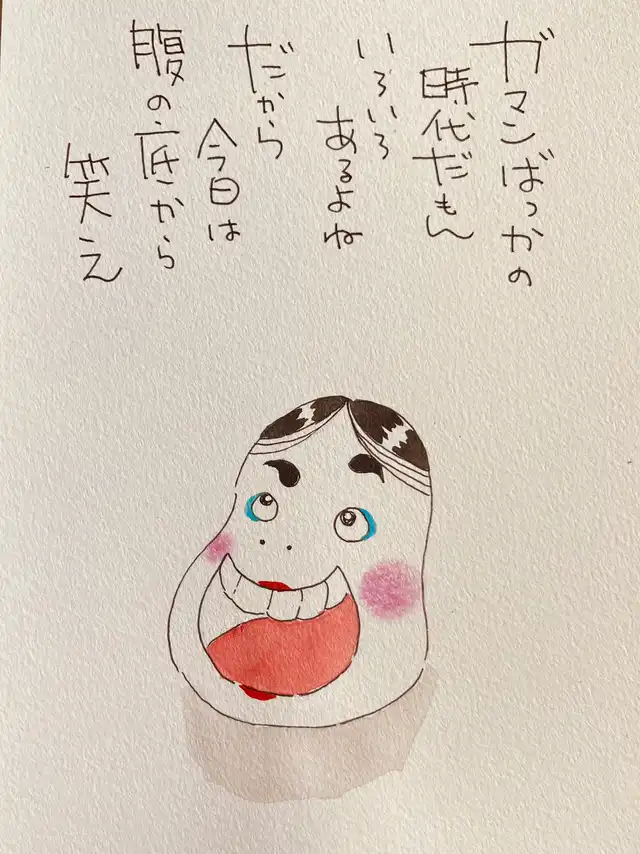 ガマンばっかの
時代だもん
いろいろ
あるよね
だから
今日は
腹の底から
笑え